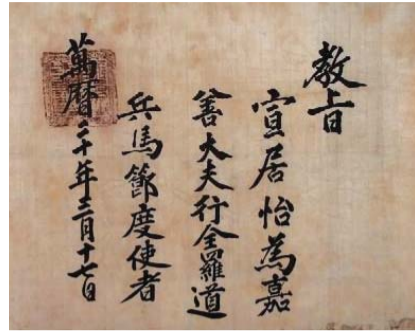 教旨
宣居怡為嘉
善大夫行全羅道
兵馬節度使者
萬曆二十年三月十七日